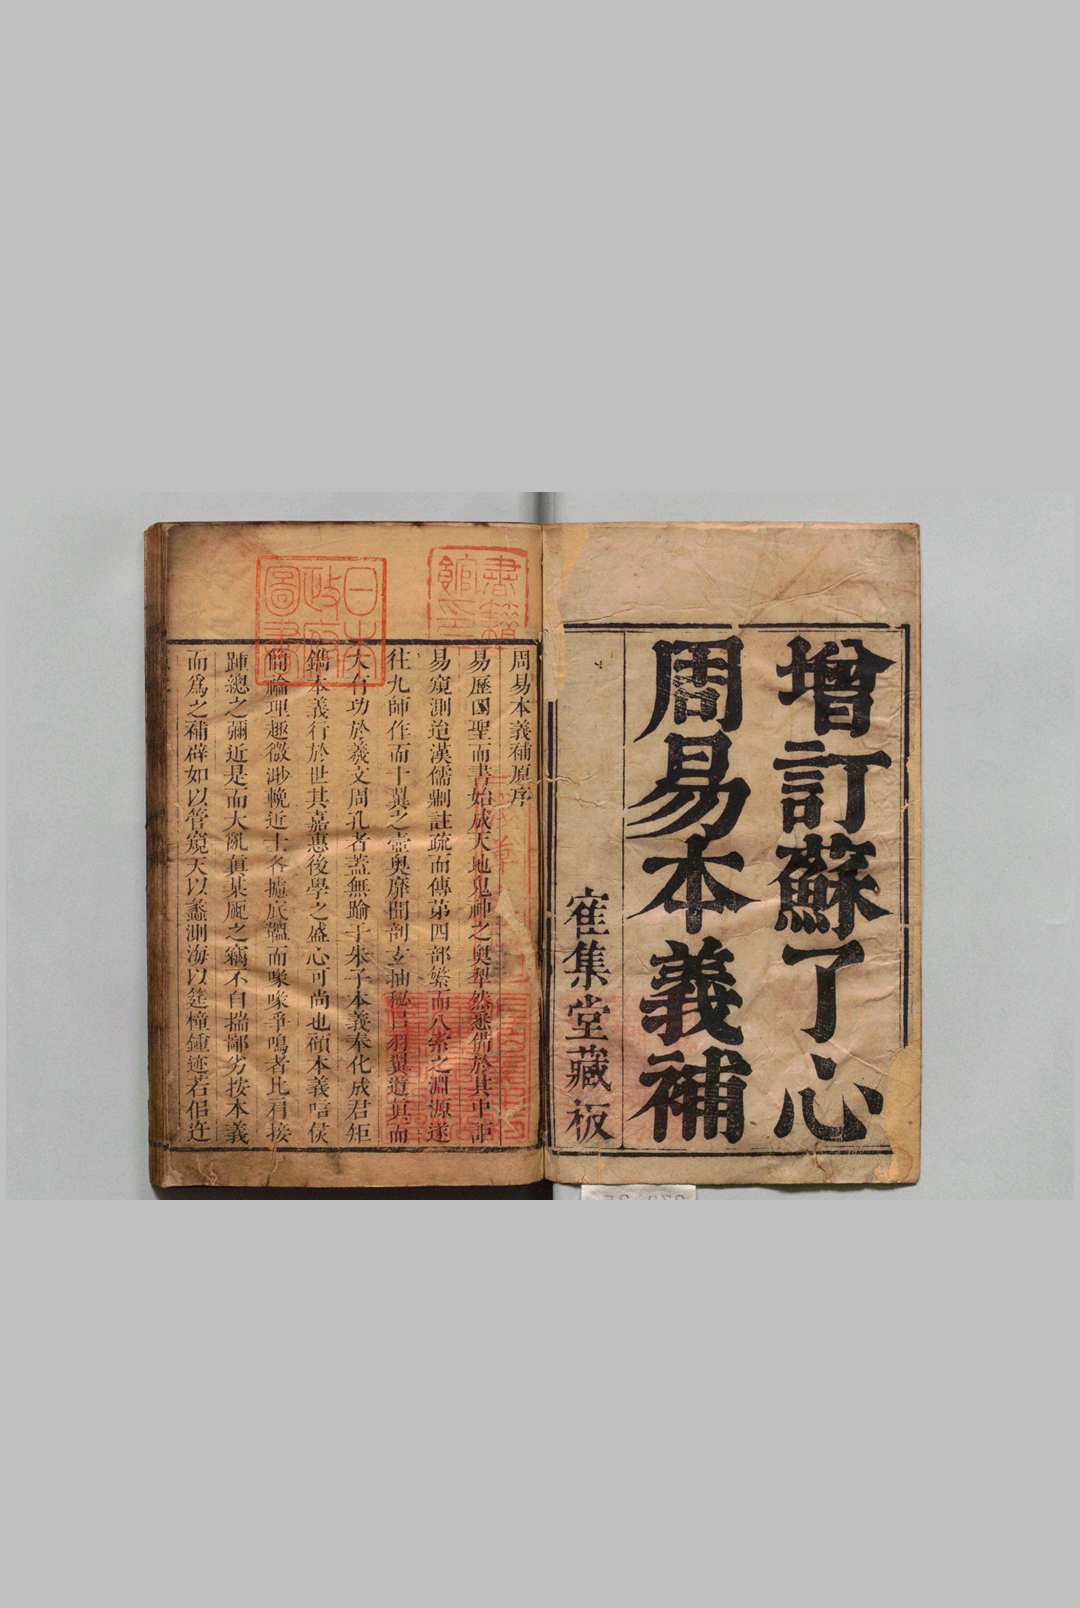 增訂蘇了心
周易本義補
集堂藏板
周易本義補原序
易歷四聖而書始成天地鬼神之奧犁然悉備於其中詎
易窺測迨漢儒劚註疏而傳苐四部繁而八索之淵源遂
往九師作而十翼之壼奧靡聞剖玄抽秘以羽翼道真而
大有功於羲文周孔者蓋無踰于朱子本義奉化成君矩
鐫本義行於世其嘉惠後學之盛心可尚也顧本義唁侯
簡論理趣微渺輓近士各攄底蘊而喙喙爭鳴者比肩接
踵總之彌近是而大亂真某厖之竊不自揣鄙劣按本義
而為之補辟如以管窺天以蠡測海以莛橦鍾迹若佀迕
書籍館印
日本政府圖書